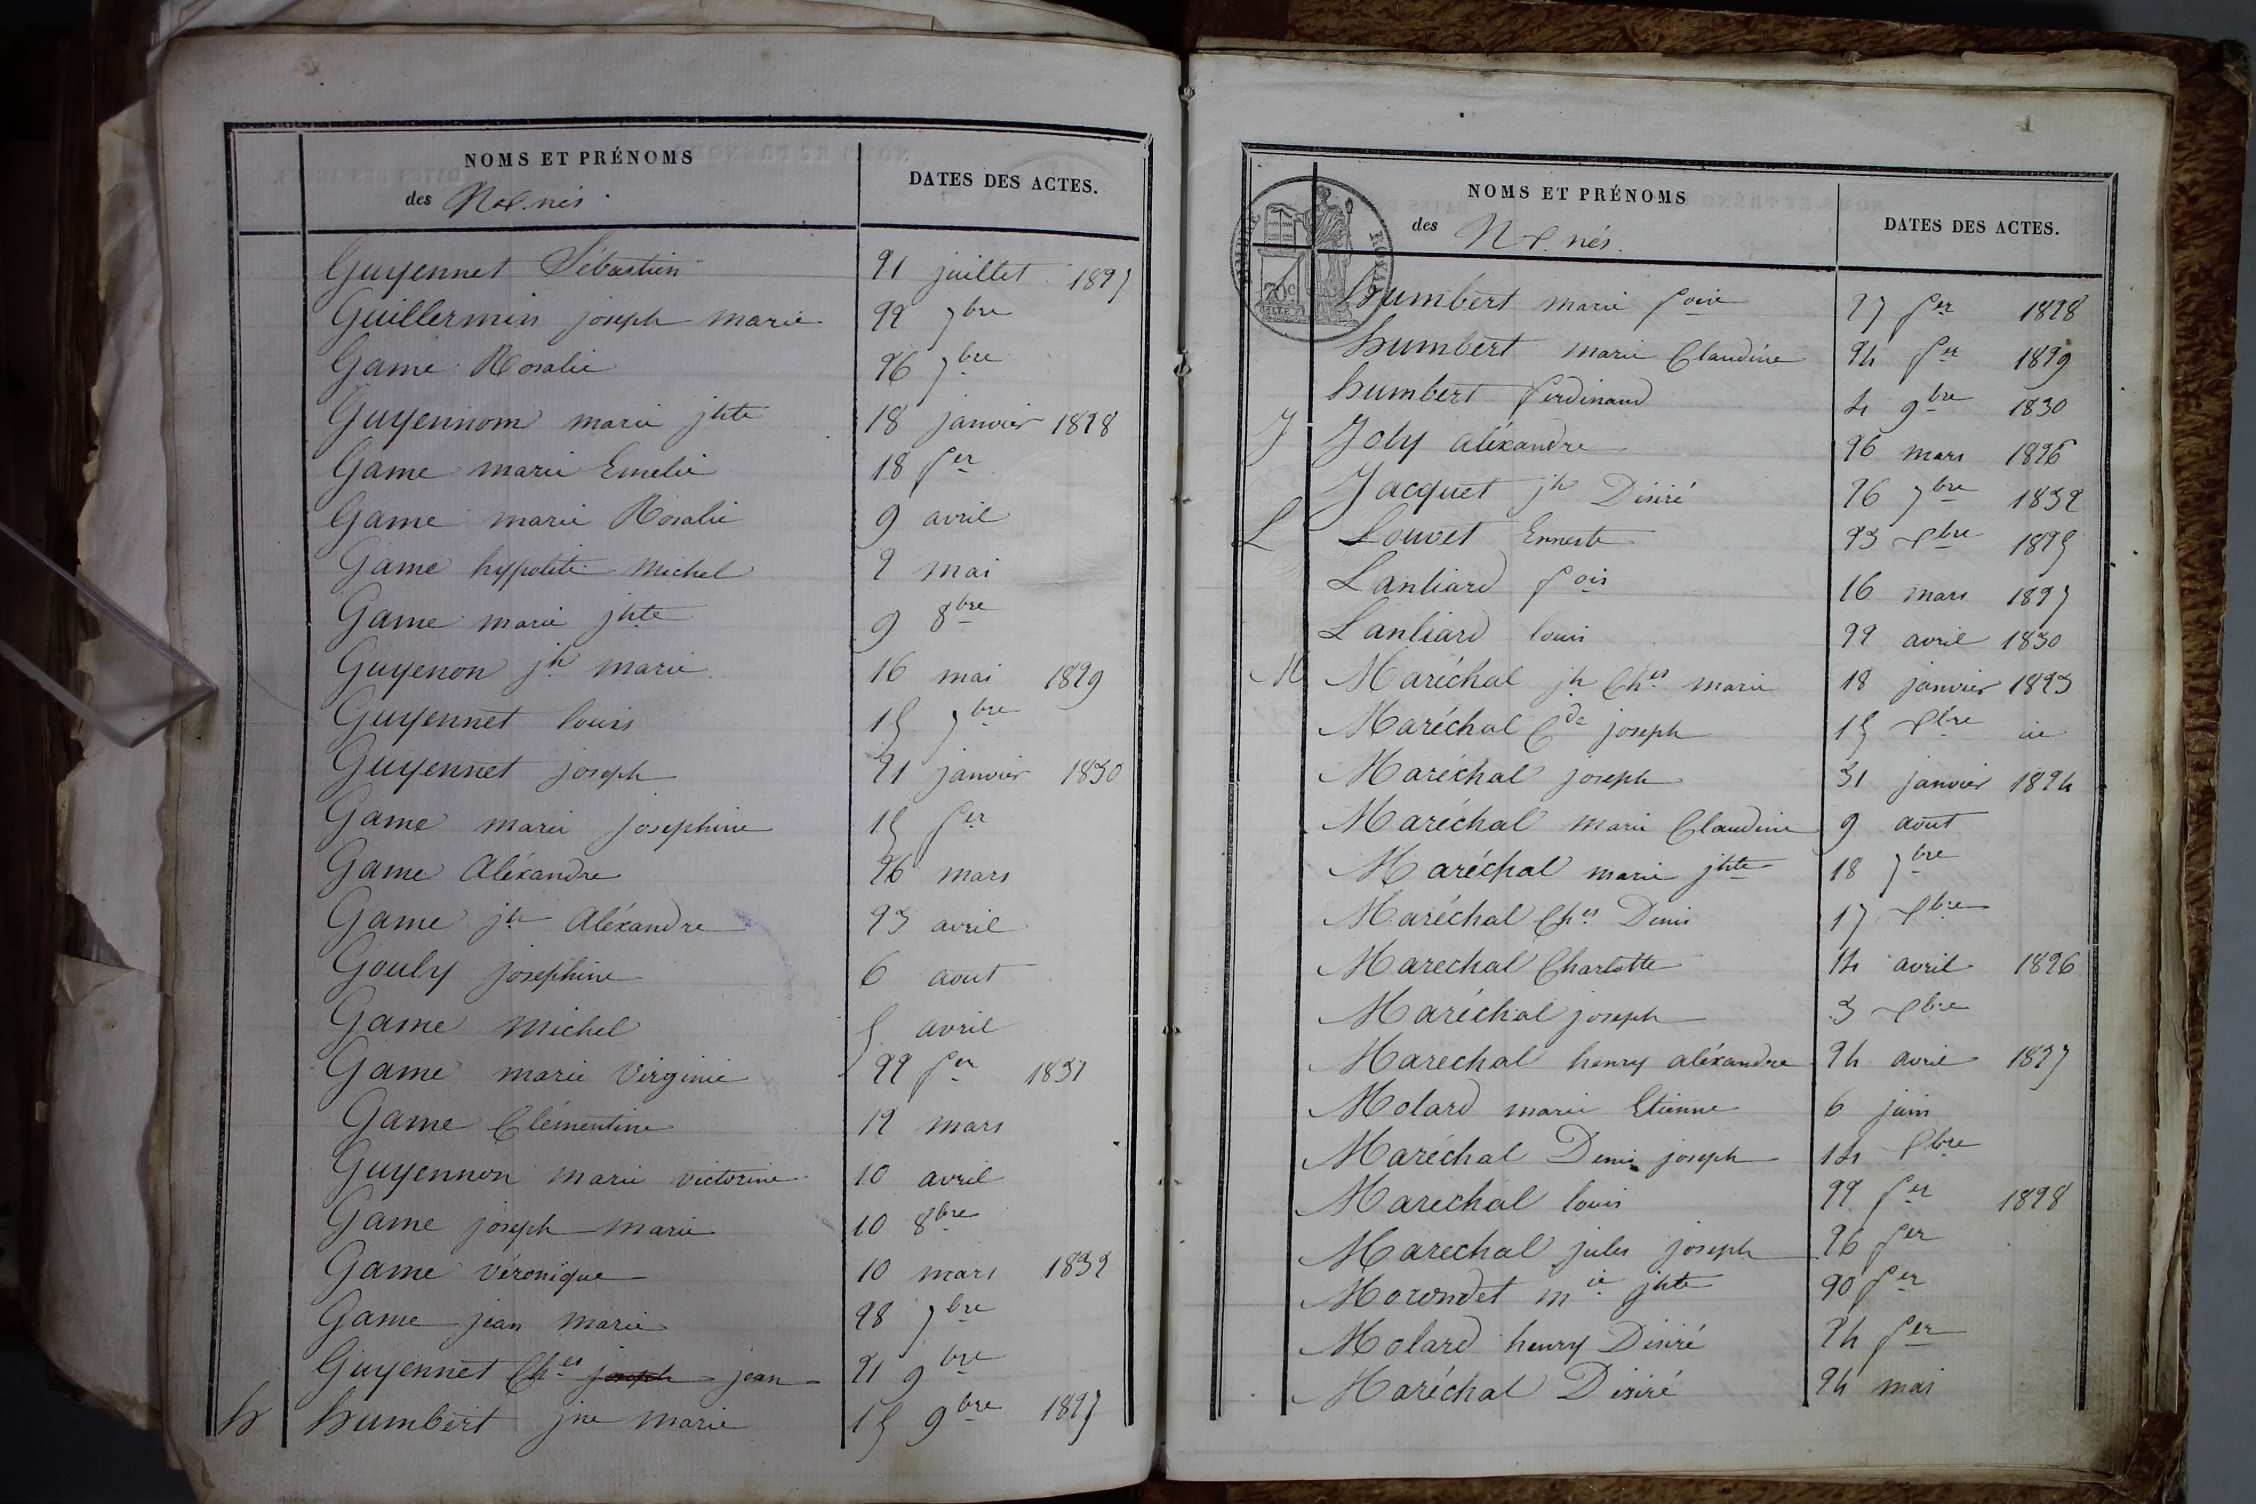 NOMS ET PRÉNOMS
des Nx. nés
DATES DES ACTES.
Guyennet Sébastien 21 juillet 1827
Guillermin joseph marie 22 7bre
Game Rosalie 26 7bre
Guyennom marie jhte 18 janvier 1828
Game marie Emelie 18 fer
Game marie Rosalie 9 avril
Game hypolite michel 2 mai
Game marie jhte 9 8bre
Guyenon jh marie 16 mai 1829
Guyennet louis 15 7bre
Guyennet joseph 21 janvier 1830
Game marie josephine 15 fer
Game Aléxandre 26 mars
Game jh Aléxandre 23 avril
Gouly josephine 6 aout
Game michel 5 avril
Game marie Virginie 22 fer 1831
Game Clémentine 12 mars
Guyennon marie victorine 10 avril
Game joseph marie 10 8bre
Game véronique 10 mars 1832
Game jean marie 28 7bre
Guyennet Ches joseph jean 21 9bre
h humbert jne marie 15 9bre 1827
NOMS ET PRÉNOMS
des Nx. nés.
DATES DES ACTES.
70c
humbert marie foise 27 fer 1828
humbert marie Claudine 24 fer 1829
humbert ferdinand 4 9bre 1830
J Joly aléxandre 26 mars 1826
Jacquet jh Désiré 26 7bre 1832
L Louvet Erneste 23 xbre 1825
Lanliard fois 16 mars 1827
Lanliard louis 22 avril 1830
M Maréchal jh Ches marie 18 janvier 1823
Maréchal Cde joseph 15 xbre
Maréchal joseph 31 janvier 1824
Maréchal marie Claudine 9 aout
Maréchal marie jhte 18 7bre
Maréchal Ches Denis 17 xbre
Marechal Charlotte 14 avril 1826
Maréchal joseph 3 xbre
Marechal henry aléxandre 24 avril 1827
Molard marie Etienne 6 juin
Maréchal Denis joseph 14 xbre
Marechal louis 22 fer 1828
Marechal jules joseph 26 fer
Morondet mie jhte 20 fer
Molard henry Désiré 24 fer
Maréchal Désiré 24 mai